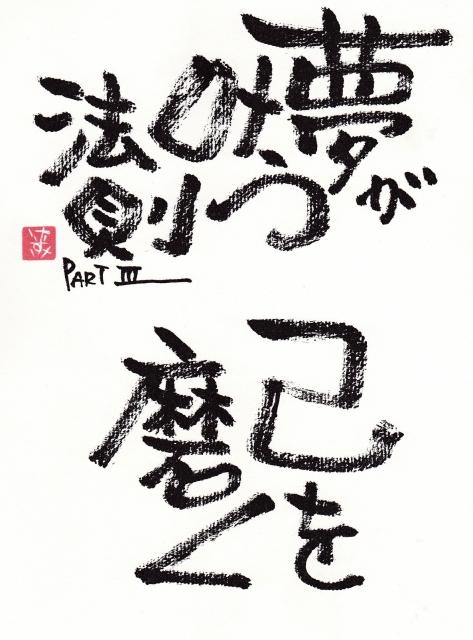 夢が
叶う
法則
PART III
己を
磨く